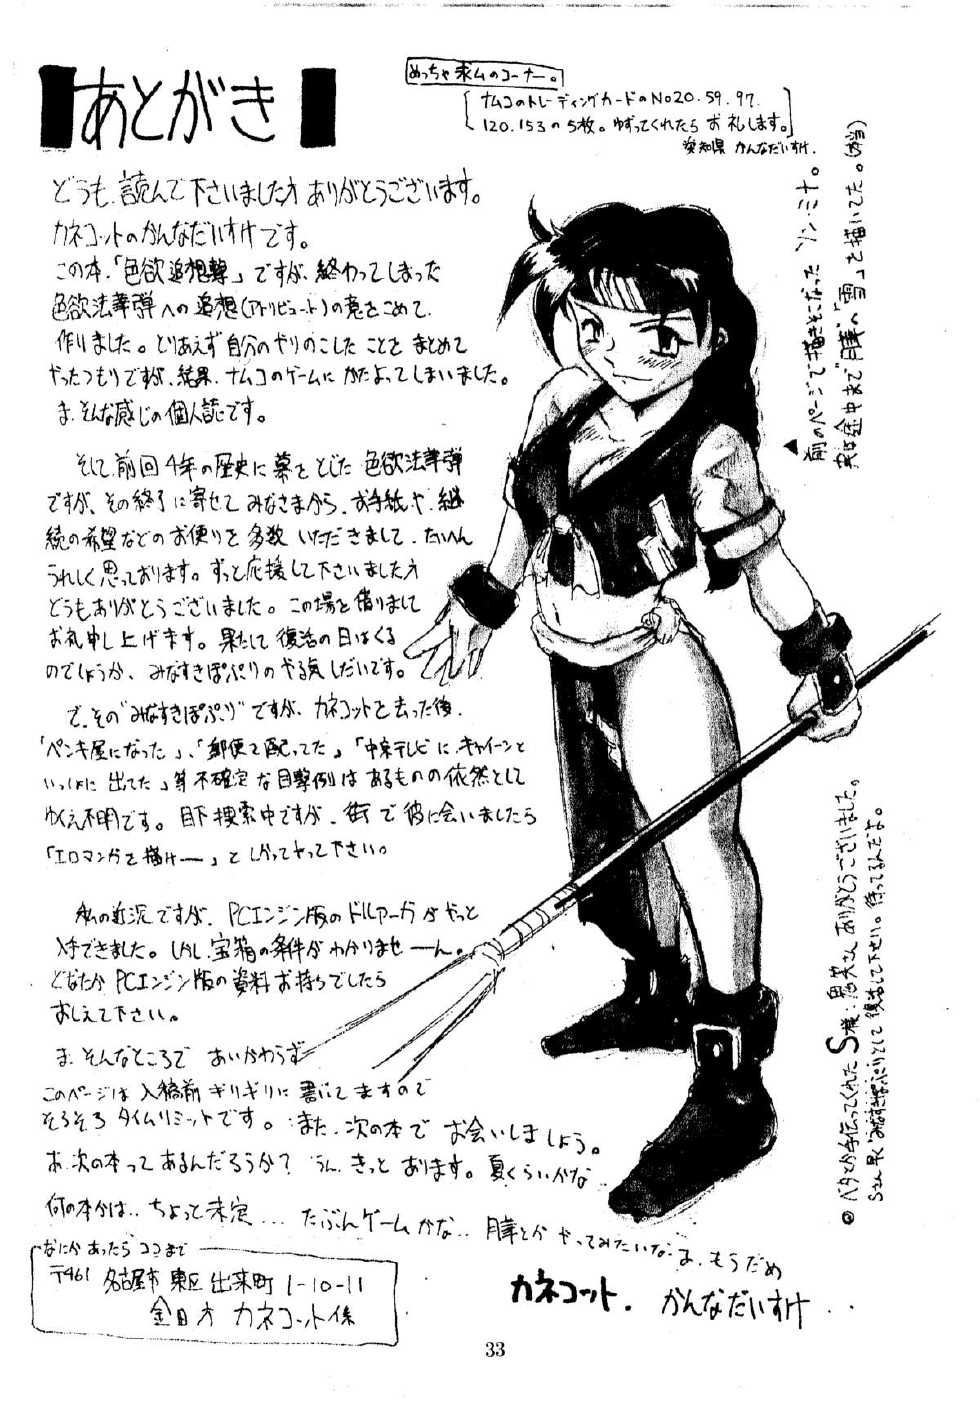 あとがき
めっちゃ求ムのコーナー。
ナムコのトレーディングカードのNo20.59.97.
120.153の5枚。ゆずってくれたらお礼します。
愛知県 かんなだいすけ.
どうも、読んで下さいました方ありがとうございます。
カネコットのかんなだいすけです。
この本、「色欲追想撃」ですが、終わってしまった
色欲法華弾への追想(アトリビュート)の意をこめて、
作りました。とりあえず自分のやりのこしたことをまとめて
やったつもりですが、結果、ナムコのゲームにかたよってしまいました。
ま、そんな感じの個人誌です。
そして前回4年の歴史に幕をとじた色欲法華弾
ですが、その終了に寄せてみなさまから、お手紙や、継
続の希望などのお便りを多数いただきまして、たいへん
うれしく思っております。ずっと応援して下さいました方
どうもありがとうございました。この場を借りまして
お礼申し上げます。果たして復活の日はくる
のでしょうか、みなすきぽぷりのやる気しだいです。
で、その"みなすきぽぷり"ですが、カネコットを去った後、
「ペンキ屋になった」、「郵便を配ってた」「中京テレビに、キャイーンと
いっしょに出てた」等不確定な目撃例はあるものの依然として
ゆくえ不明です。目下捜索中ですが、街で彼に会いましたら
「エロマンガを描けー」としかってやって下さい。
私の近況ですが、PCエンジン版のドルアーガがやっと
入手できました。しかし宝箱の条件がわかりませーん。
どなたかPCエンジン版の資料お持ちでしたら
おしえて下さい。
ま、そんなところであいかわらず
このページは入稿前ギリギリに書いてますので
そろそろタイムリミットです。また、次の本でお会いしましょう。
お、次の本ってあるんだろうか?うん、きっとあります。夏くらいかな
何の本かは、ちょっと未定...たぶんゲームかな..
とかやってみたいな..ま、もうだめ
カネコット. かんなだいすけ...
なにかあったらココまで
〒461 名古屋市東区出来町1-10-11
金田方 カネコット係
▲前のページで描きそこなったソン・ミナ。
実は途中まで
と描いてた。(本当)
◎ベタとか手伝ってくれたS様、
ありがとうございました。
Sさん早くみなすきぽぷりとして復活して下さい。待ってるんだよ。
33